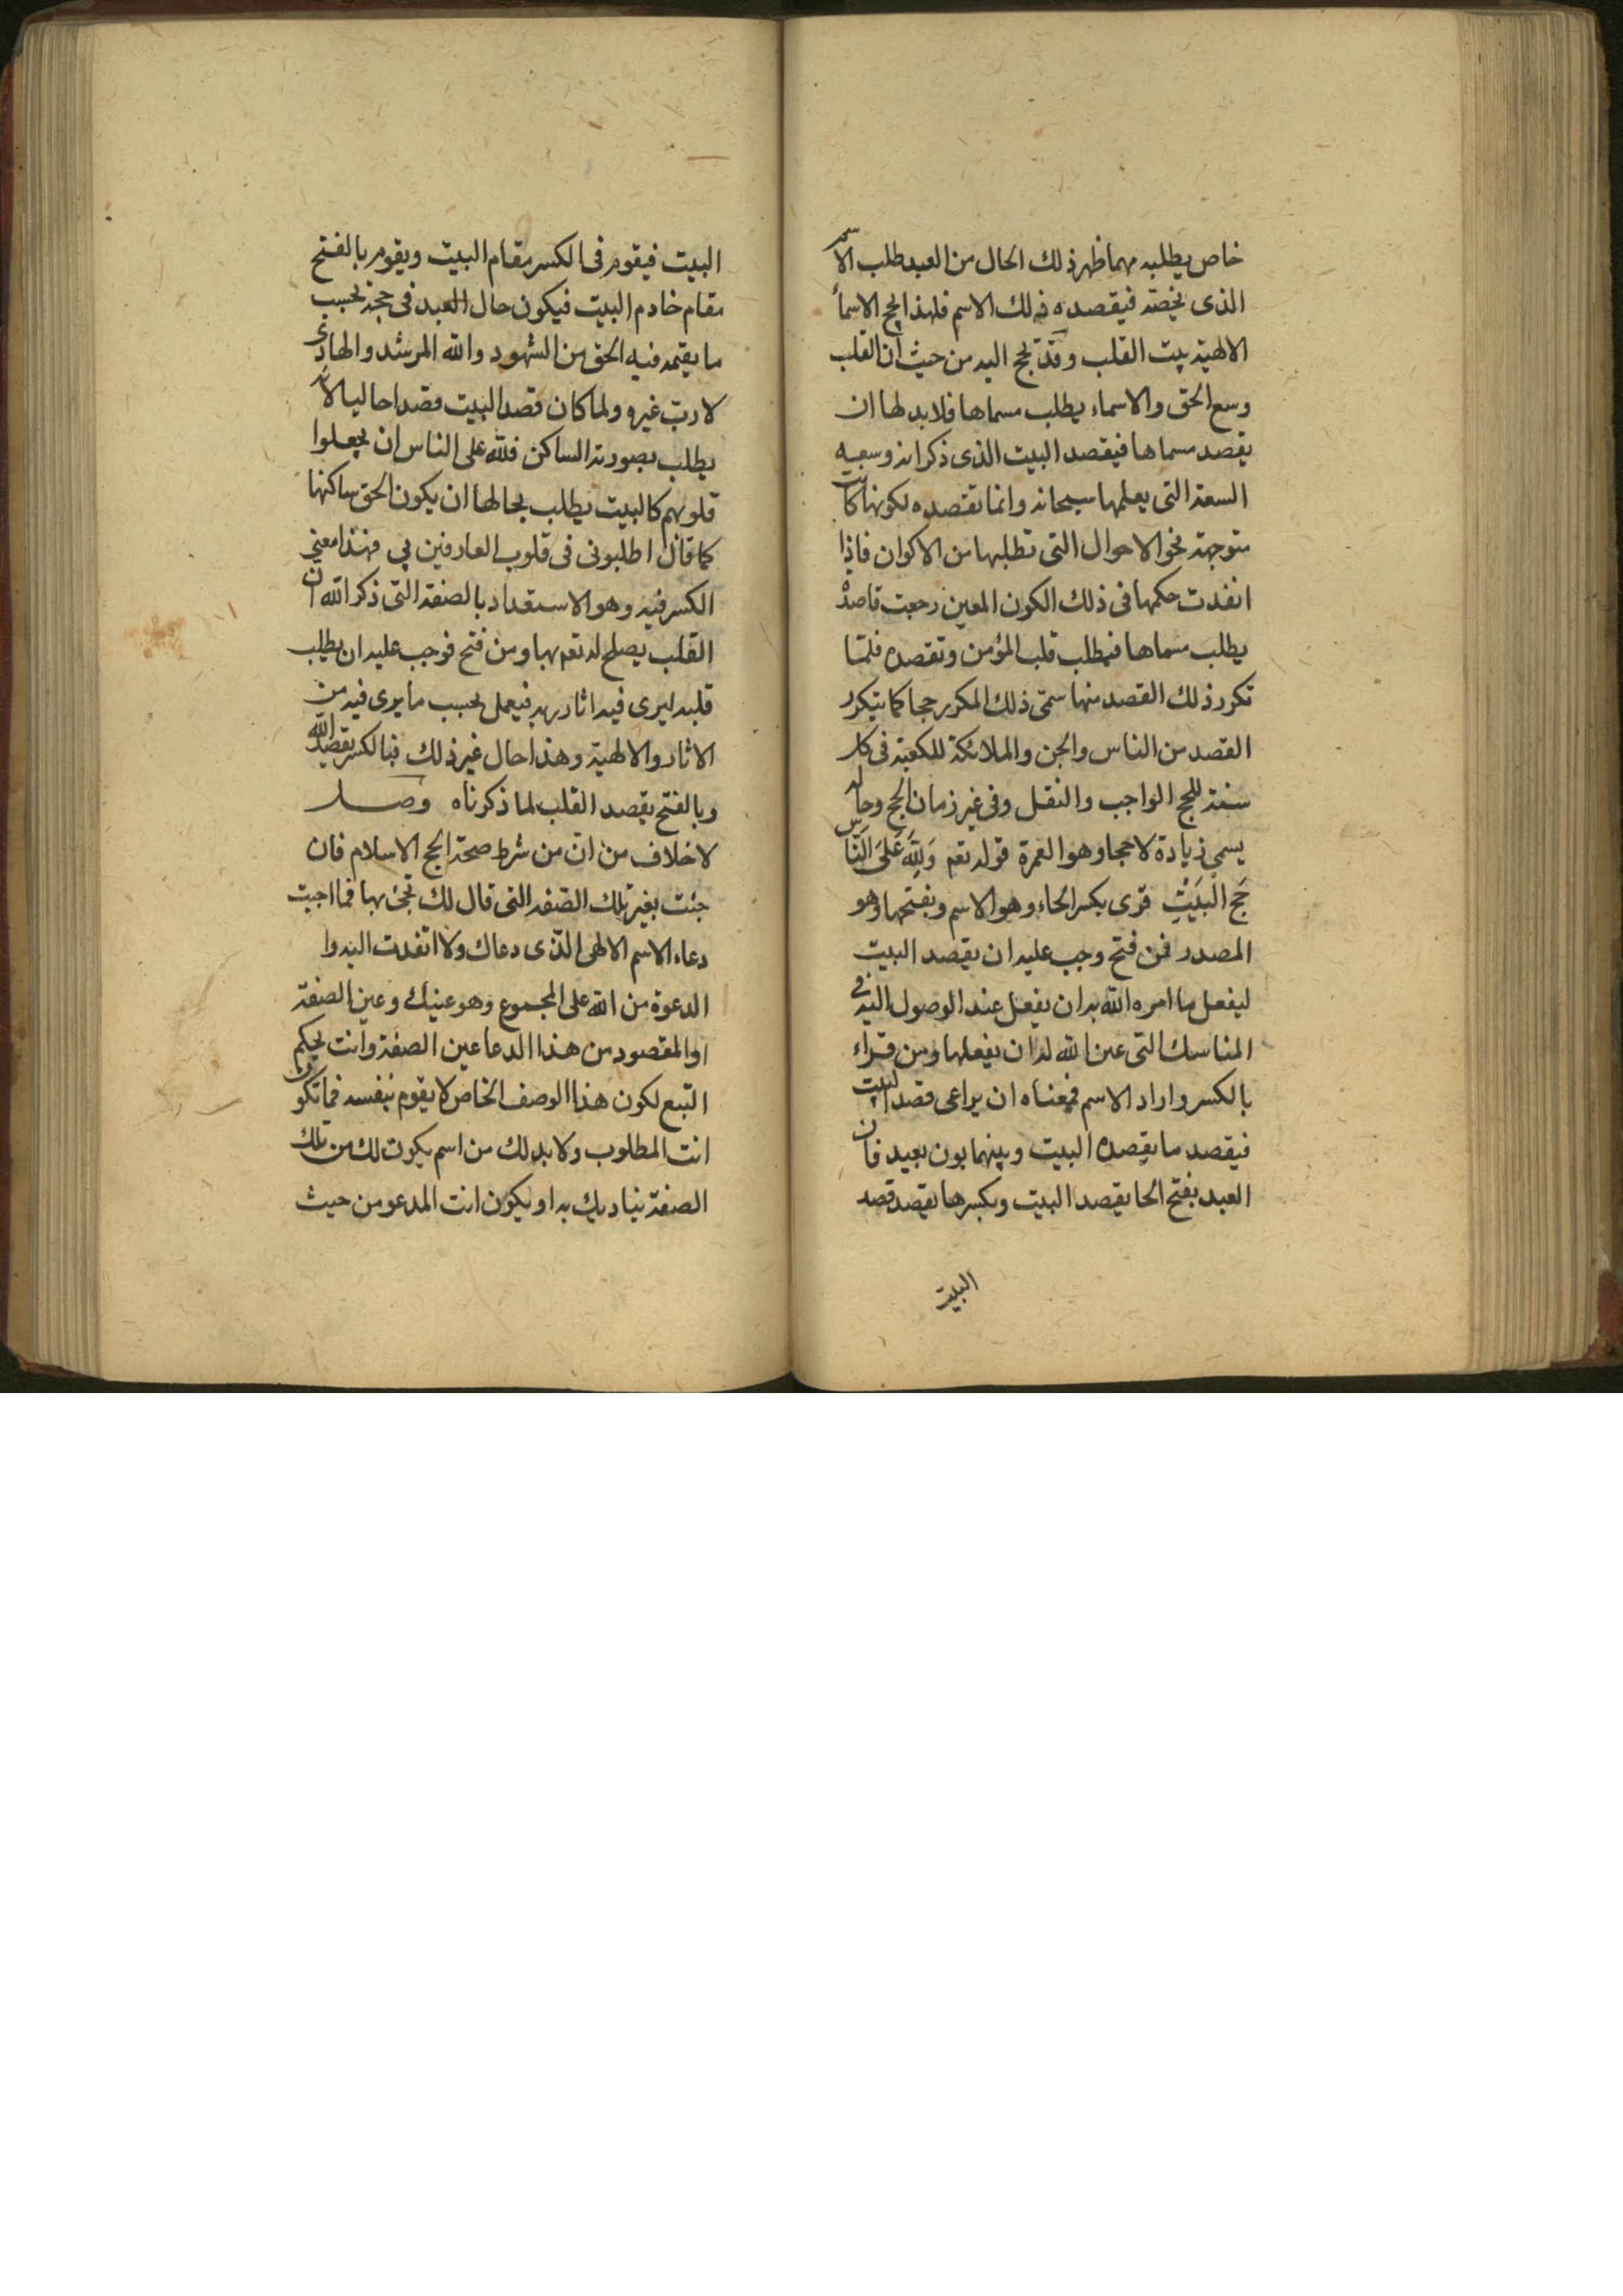 خاص يطلبه مهما ظهر ذلك الحال من العبد طلب الاسم
الذى يخصه فيقصده ذلك الاسم فلهذا الحج الاسمأ
الالهية بيت القلب وقد تحج اليه من حيث ان القلب
وسع الحق والاسماء يطلب مسماها فلا بد لها ان
يقصد مسماها فيقصد البيت الذى ذكر انه وسعه
السعة التى يعلمها سبحانه وانما تقصده لكونها كانت
متوجهة نحو الاحوال التى تطلبها من الاكوان فاذا
انفذت حكمها فى ذلك الكون المعين رجعت قاصدة
يطلب مسماها فيطلب قلب المؤمن وتقصده فلما
تكرر ذلك القصد منها سمى ذلك المكرر حجا كما يتكرر
القصد من الناس والجن والملائكة للكعبة فى كل
سنة للحج الواجب والنفل وفى غير زمان الحج وحاله
يسمى زيادة لا حجا وهو العمرة قوله تعم وَلِلَّهِ عَلَى النَّاسِ
حَج الْبَيْتِ قرى بكسر الحاء وهو الاسم وبفتحها وهو
المصدر فمن فتح وجب عليه ان يقصد البيت
ليفعل ما امره الله به ان يفعل عند الوصول اليه فى
المناسك التى عين الله له ان يفعلها ومن قراء
بالكسر واراد الاسم فمعناه ان يراعى قصد البيت
فيقصد ما يقصده البيت وبينهما بون بعيد فان
العبد بفتح الحا يقصد البيت وبكسرها يقصد قصد
البيت
البيت فيقوم فى الكسر مقام البيت ويقوم بالفتح
مقام خادم البيت فيكون حال العبد فى حجه بحسب
ما يقيمه فيه الحق من الشهود والله المرشد والهادى
لا رب غيره ولما كان قصد البيت قصدا حاليا لانه
يطلب بصورته الساكن فلله على الناس ان يجعلوا
قلوبهم كالبيت يطلب بحالها ان يكون الحق ساكنها
كما قال اطلبونى فى قلوب العارفين بي فهذا معنى
الكسر فيه وهو الاستعداد بالصفة التى ذكر الله ان
القلب يصلح له تعم بها ومن فتح فوجب عليه ان يطلب
قلبه ليرى فيه اثار ربه فيعمل بحسب ما يرى فيه من
الاثار والالهية وهذا حال غير ذلك فبالكسر يقصد الله
وبالفتح يقصد القلب لما ذكرناه وصل
لا خلاف من ان من شرط صحة الحج الاسلام فان
جئت بغير تلك الصفة التى قال لك تجئ بها فما اجبت
دعاء الاسم الالهى الذى دعاك ولا انفدت اليه وا
الدعوة من الله على المجموع وهو عينك وعين الصفة
او المقصود من هذا الدعا عين الصفة وانت بحكم
التبع لكون هذا الوصف الخاص لا يقوم بنفسه فما تكون
انت المطلوب ولا بد لك من اسم يكون لك من تلك
الصفة يناديك به او يكون انت المدعو من حيث